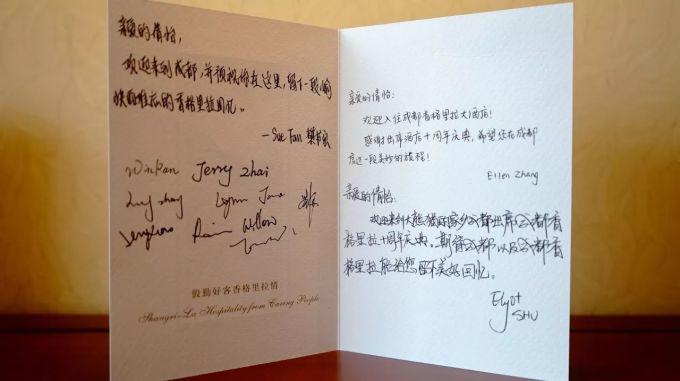 亲爱的倩怡,
欢迎来到成都,并预祝你在这里,留下一段愉
快而难忘的香格里拉回忆。
—Sue Fan
Winkan Jerry Zhai
zhang Lynn Jane
Rain Willow
殷勤好客香格里拉情
Shangri-La Hospitality from Caring People
亲爱的倩怡:
欢迎入住成都香格里拉大酒店!
感谢出席酒店十周年庆典,希望您在成都
度过一段美妙的旅程!
Ellen Zhang
亲爱的倩怡:
欢迎来到大熊猫的家乡成都出席成都香
格里拉十周年庆典。期待成都以及成都香
格里拉能给您留下美好回忆。
Elyot
SHU